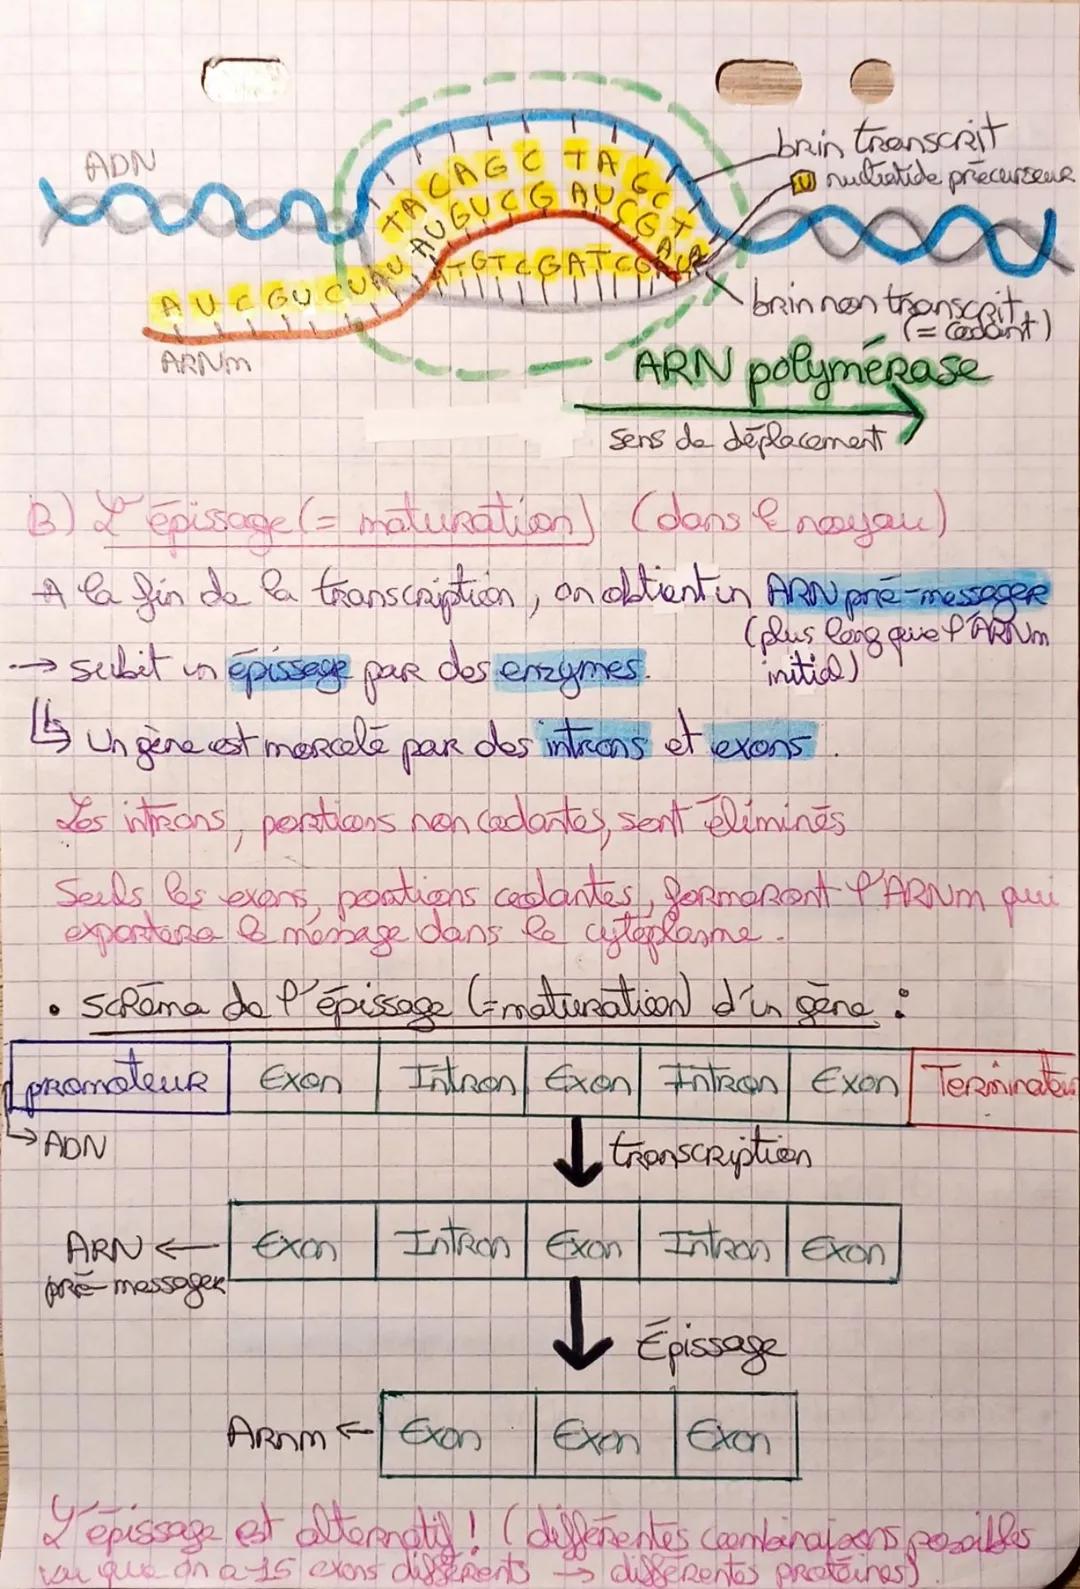 ADN
brin transcrit
U nucléotide précurseur
TACAGC TAGCT
AUGUCGAUCGA
TGTCGATCGA
AUCGUCUAU
brin non transcrit
(= codant)
ARNm
ARN polymérase
sens de déplacement
B) L'épissage (= maturation) (dans le noyau)
A la fin de la transcription, on obtient un ARN pré-messager
(plus long que l'ARNm
initial)
→ subit un épissage par des enzymes.
↳ Un gène est morcelé par des introns et exons.
Les introns, portions non codantes, sont éliminés
Seuls les exons, portions codantes, formeront l'ARNm qui
exportera le message dans le cytoplasme.
• schéma de l'épissage (=maturation) d'un gène :
promoteur Exon Intron Exon Intron Exon Terminateur
→ ADN
transcription
ARN ← Exon Intron Exon Intron Exon
pré-messager
Épissage
ARNm ← Exon Exon Exon
L'épissage est alternatif ! (différentes combinaisons possibles
vu que on a 15 exons différents → différentes protéines)